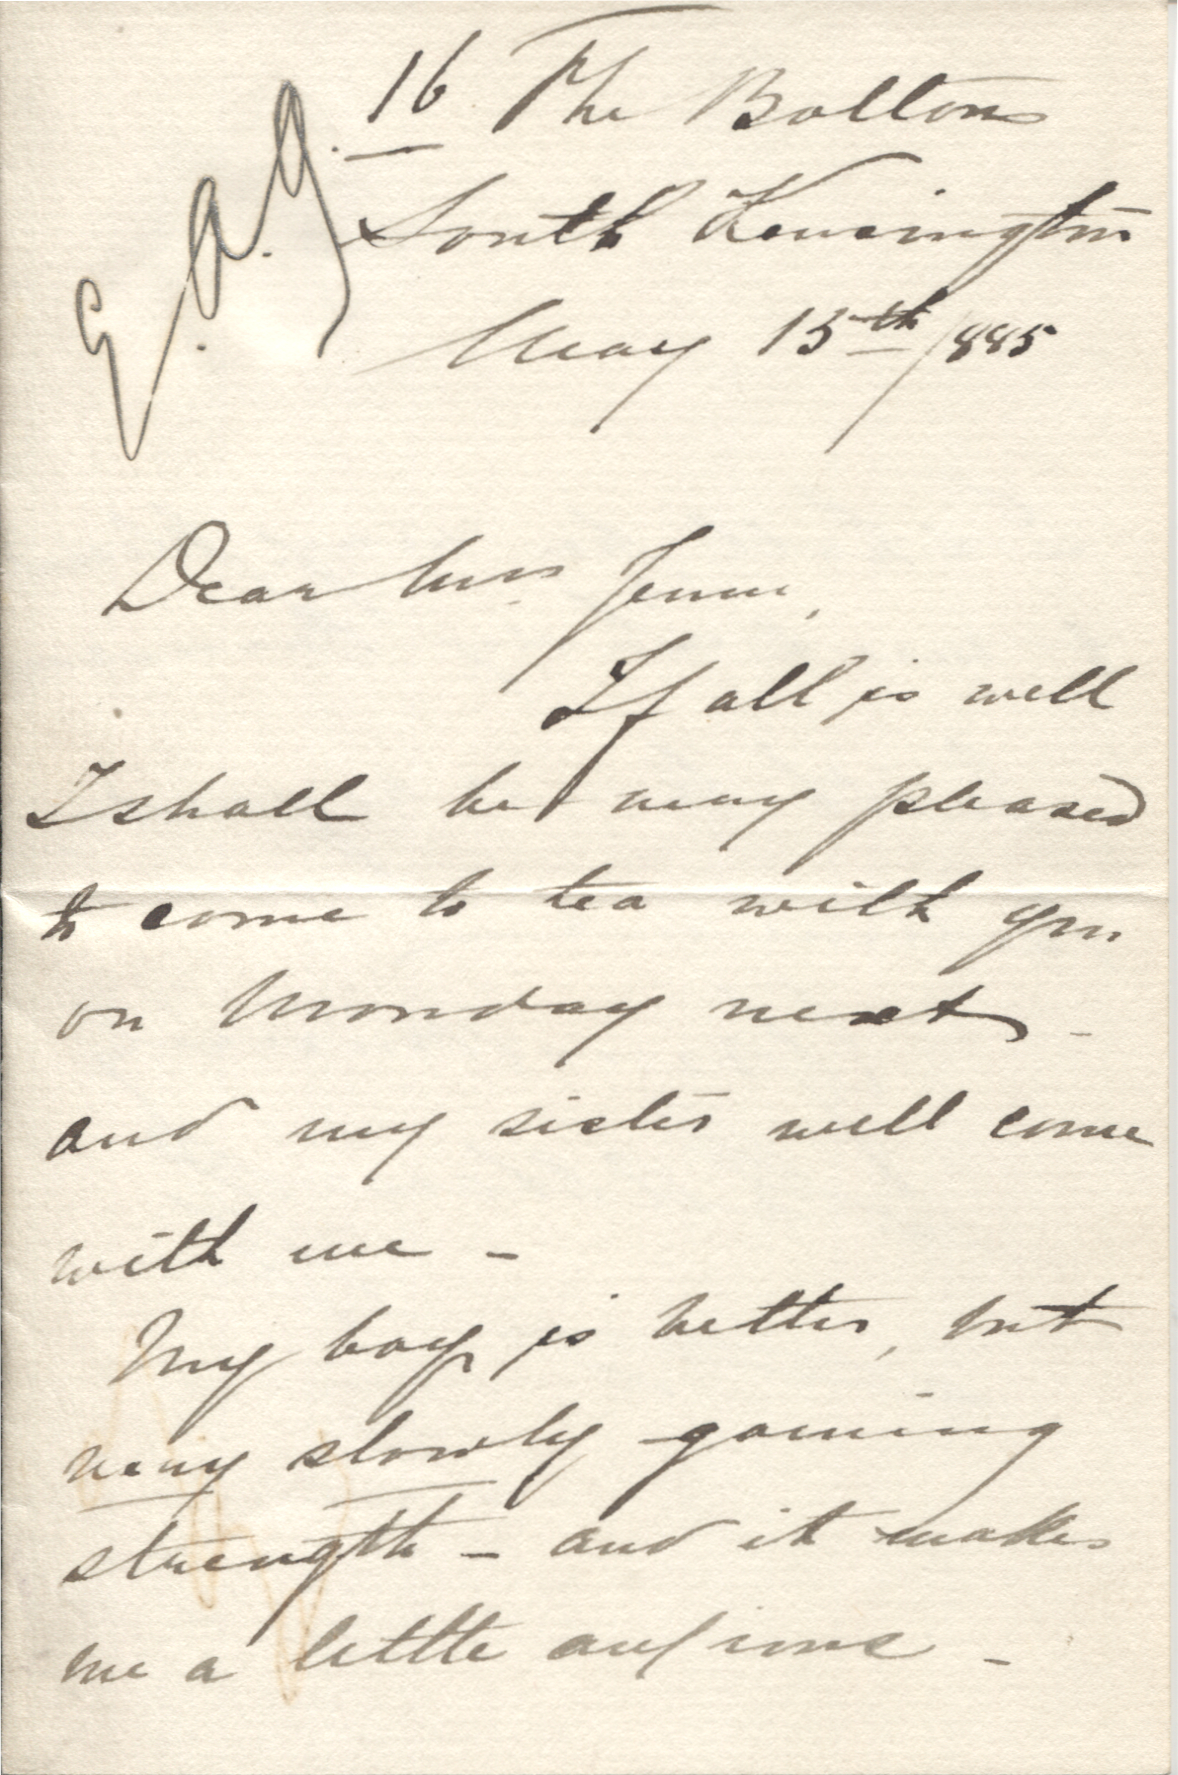 16 The Boltons
E.A.G.
South Kensington
May 15th/885
Dear Mrs. Jenne,
If all is well
I shall be very pleased
to come to tea with you
on Monday next -
and my sister will come
with me -
My boy is better, but
very slowly gaining
strength - and it makes
me a little anxious -